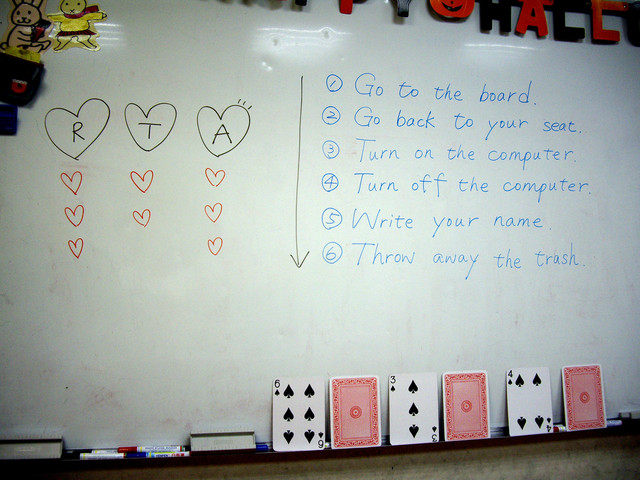 PPY HALL
R T A
① Go to the board.
② Go back to your seat.
③ Turn on the computer.
④ Turn off the computer.
⑤ Write your name.
⑥ Throw away the trash.
6 9
3 3
4 4